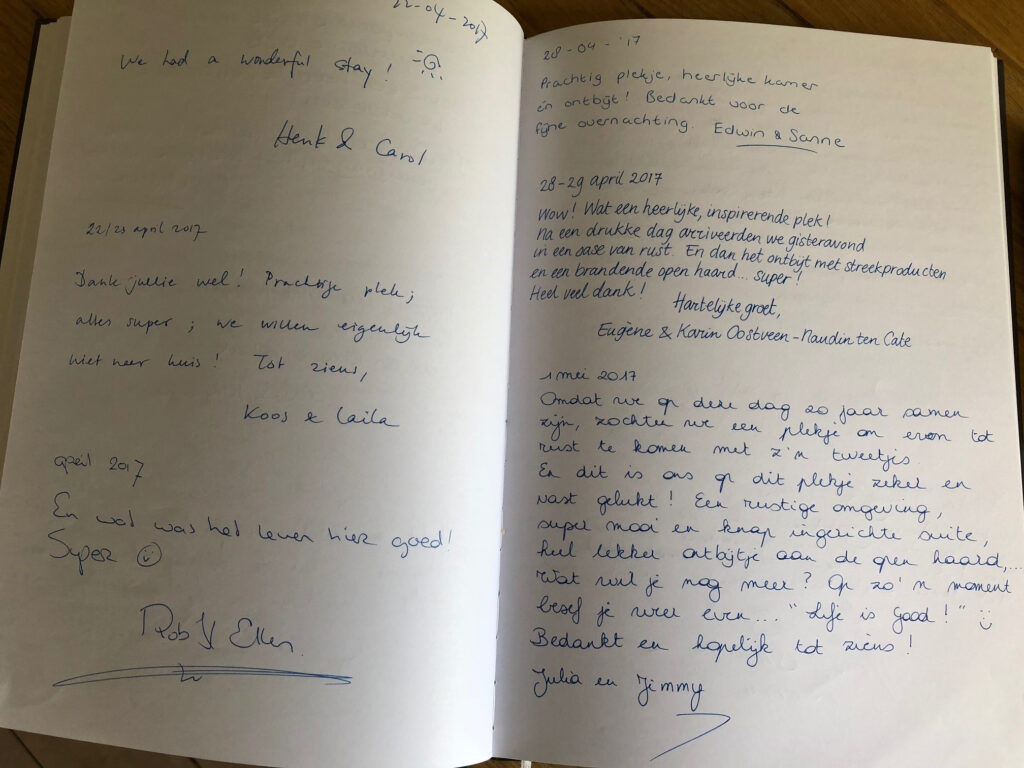 22-04-2017
We had a wonderful stay!
Henk & Carol
22/23 april 2017
Dank jullie wel! Prachtige plek;
alles super; we willen eigenlijk
niet naar huis! Tot ziens,
Koos & Laila
april 2017
En wat was het leven hier goed!
Super
Rob & Ellen
28-04-'17
Prachtig plekje, heerlijke kamer
én ontbijt! Bedankt voor de
fijne overnachting. Edwin & Sanne
28-29 april 2017
Wow! Wat een heerlijke, inspirerende plek!
Na een drukke dag arriveerden we gisteravond
in een oase van rust. En dan het ontbijt met streekproducten
en een brandende open haard... super!
Heel veel dank!
Hartelijke groet,
Eugène & Karin Oostveen-Naudin ten Cate
1 mei 2017
Omdat we op deze dag 20 jaar samen
zijn, zochten we een plekje om even tot
rust te komen met z'n tweetjes.
En dit is ons op dit plekje zeker en
vast gelukt! Een rustige omgeving,
super mooi en knap ingerichte suite,
heel lekker ontbijtje aan de open haard,...
Wat wil je nog meer? Op zo'n moment
besef je weer even... "Life is Good!"
Bedankt en hopelijk tot ziens!
Julia en Jimmy